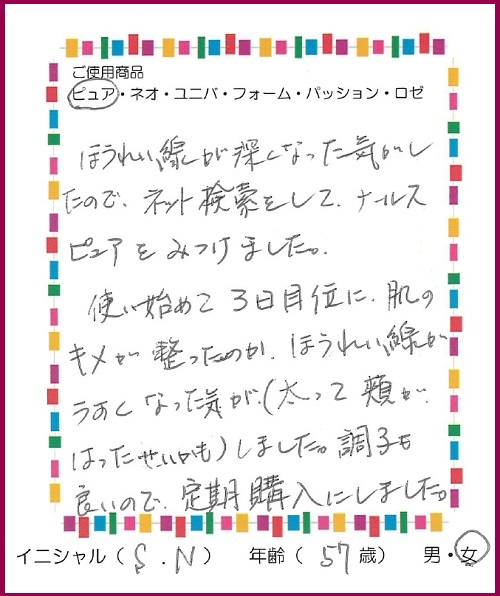 ご使用商品
ピュア・ネオ・ユニバ・フォーム・パッション・ロゼ
ほうれい線が深くなった気がし
たので、ネット検索をして、ナールス
ピュアをみつけました。
使い始めて3日目位に、肌の
キメが整ったのか、ほうれい線が
うすくなった気が(太って頬が
はったせいかも)しました。調子も
良いので、定期購入にしました。
イニシャル(S.N) 年齢(57歳) 男・女